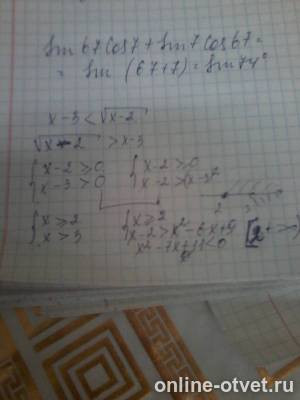 sin 67 cos 7 + sin 7 cos 67 =
= sin (67+7) = sin 74°
x-3 < √x-2
√x-2 > x-3
{ x-2 ≥ 0 { x-2 ≥ 0
x-3 > 0 x-2 > (x-3)²
{ x ≥ 2 { x ≥ 2
x > 3 x-2 > x²-6x+9
x²-7x+11 < 0
2 3
[2; +∞)
online-otvet.ru